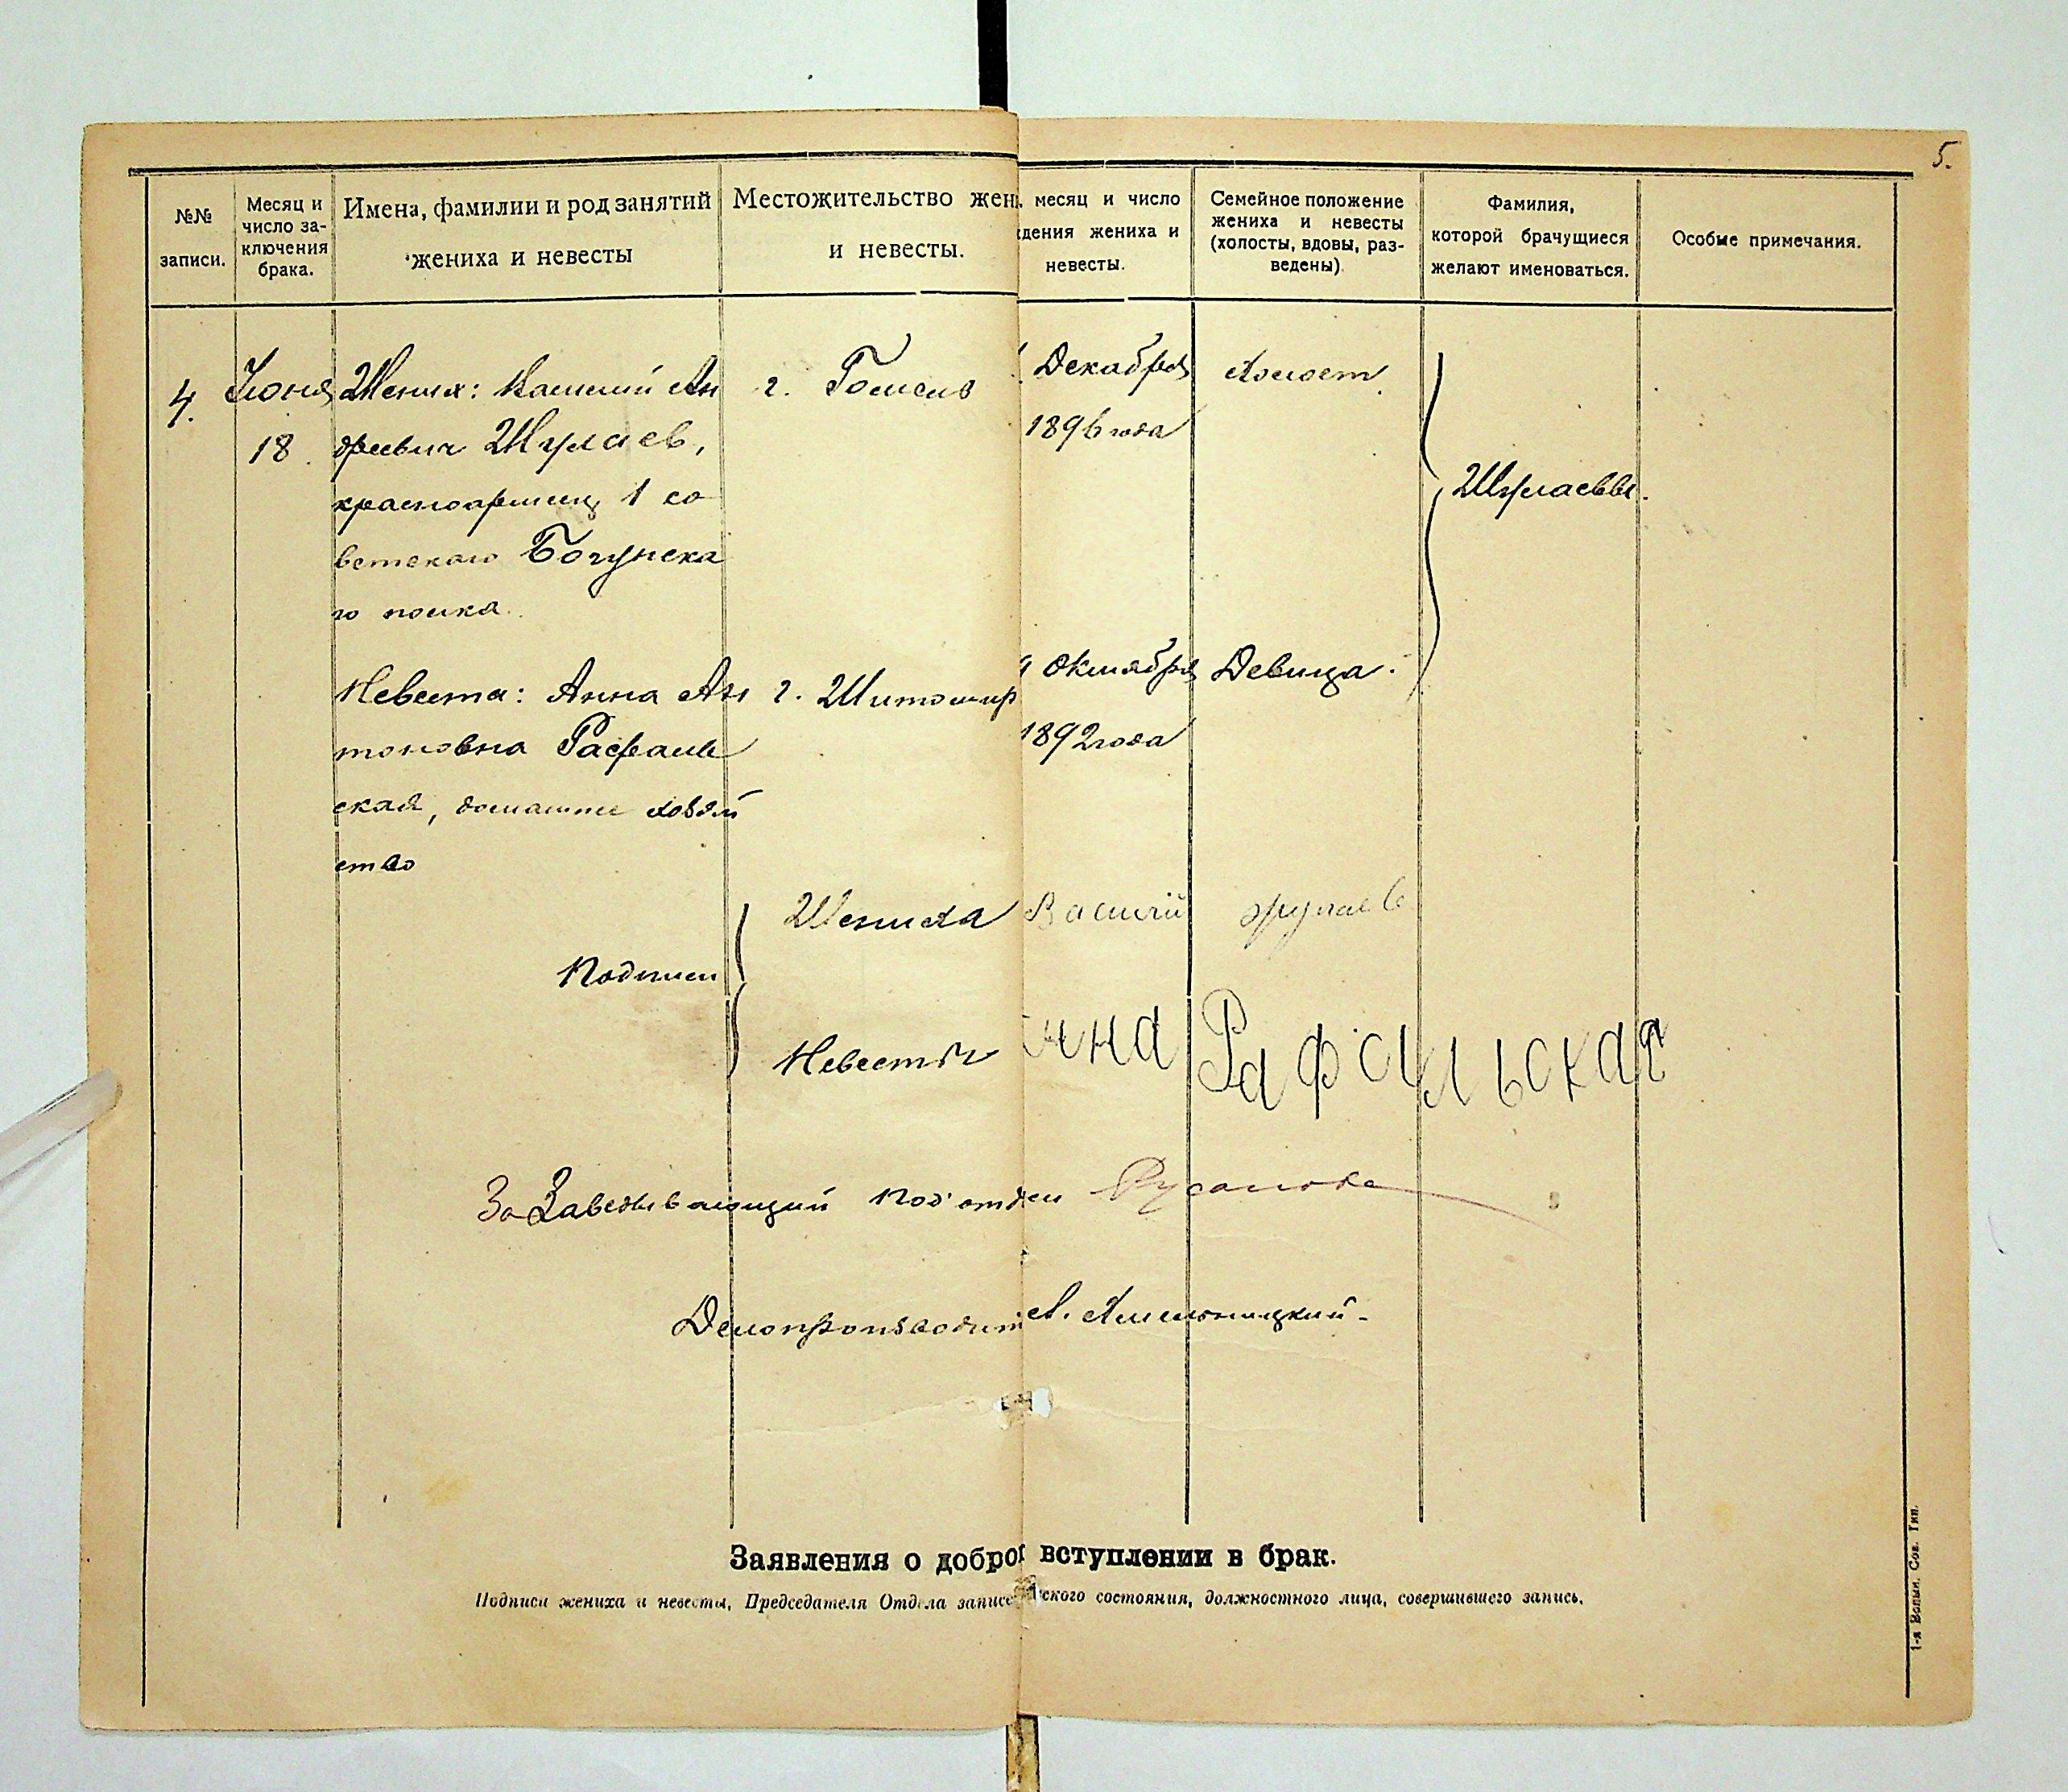 5.
№№ записи.
Месяц и число заключения брака.
Имена, фамилии и род занятий жениха и невесты
Местожительство жен
и невесты.
месяц и число
дения жениха и
невесты.
Семейное положение жениха и невесты (холосты, вдовы, разведены)
Фамилия, которой брачущиеся желают именоваться.
Особые примечания.
4.
Июня
18.
Жених: Василий Ан
дреевич Жулаев,
красноармеец 1 со
ветскаго Богунска
го полка.
г. Гомель
Декабря
1896 года
Холост.
Жулаевы.
Невеста: Анна Ан
тоновна Рафаль
ская, домашнее хозяй
ство
г. Житомир
Октября
1892 года
Девица.
Подписи
Жениха Василий Жулаев
Невесты нна Рафальская
За Заведывающий Подотдел Русакова
Делопроизводит А. Хмельницкий
Заявления о добро вступлении в брак.
Подписи жениха и невесты, Председателя Отдела записе ского состояния, должностного лица, совершившего запись.
1-я Волын. Сов. Тип.